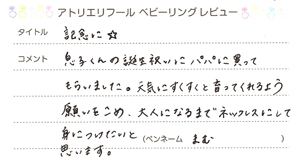 アトリエリフール ベビーリング レビュー
タイトル 記念に☆
コメント 息子くんの誕生祝いにパパに買って
もらいました。元気にすくすくと育ってくれるよう
願いをこめ、大人になるまでネックレスにして
身につけたいと
思います。
(ペンネーム まむ )